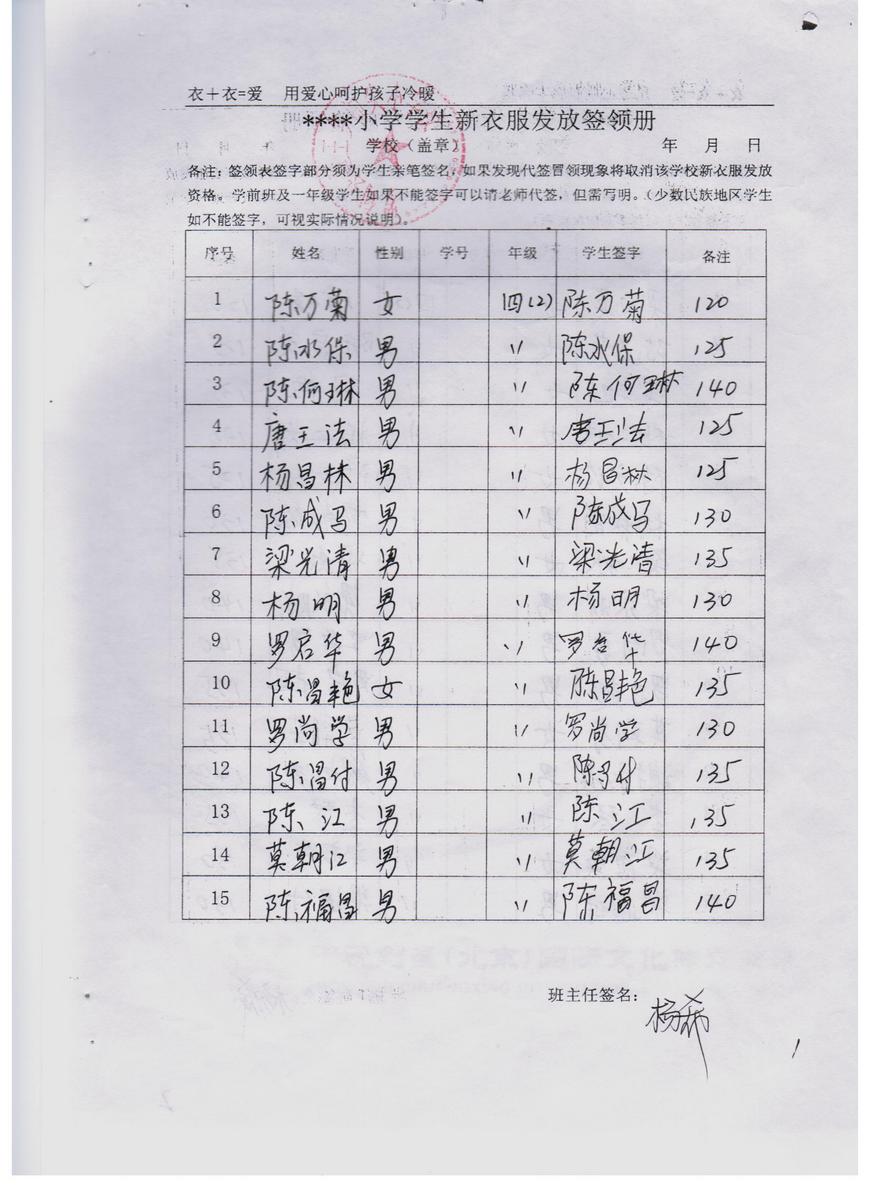 衣＋衣=爱 用爱心呵护孩子冷暖
****小学学生新衣服发放签领册
学校（盖章） 年 月 日
备注：签领表签字部分须为学生亲笔签名，如果发现代签冒领现象将取消该学校新衣服发放
资格。学前班及一年级学生如果不能签字可以请老师代签，但需写明。（少数民族地区学生
如不能签字，可视实际情况说明）。
序号 姓名 性别 学号 年级 学生签字 备注
1 陈万菊 女 四(2) 陈万菊 120
2 陈水保 男 〃 陈水保 125
3 陈何琳 男 〃 陈何琳 140
4 唐王法 男 〃 唐王法 125
5 杨昌林 男 〃 杨昌林 125
6 陈成马 男 〃 陈成马 130
7 梁光清 男 〃 梁光清 135
8 杨明 男 〃 杨明 130
9 罗启华 男 〃 罗启华 140
10 陈昌艳 女 〃 陈昌艳 135
11 罗尚学 男 〃 罗尚学 130
12 陈昌付 男 〃 陈昌付 135
13 陈江 男 〃 陈江 135
14 莫朝江 男 〃 莫朝江 135
15 陈福昌 男 〃 陈福昌 140
班主任签名：杨希
1